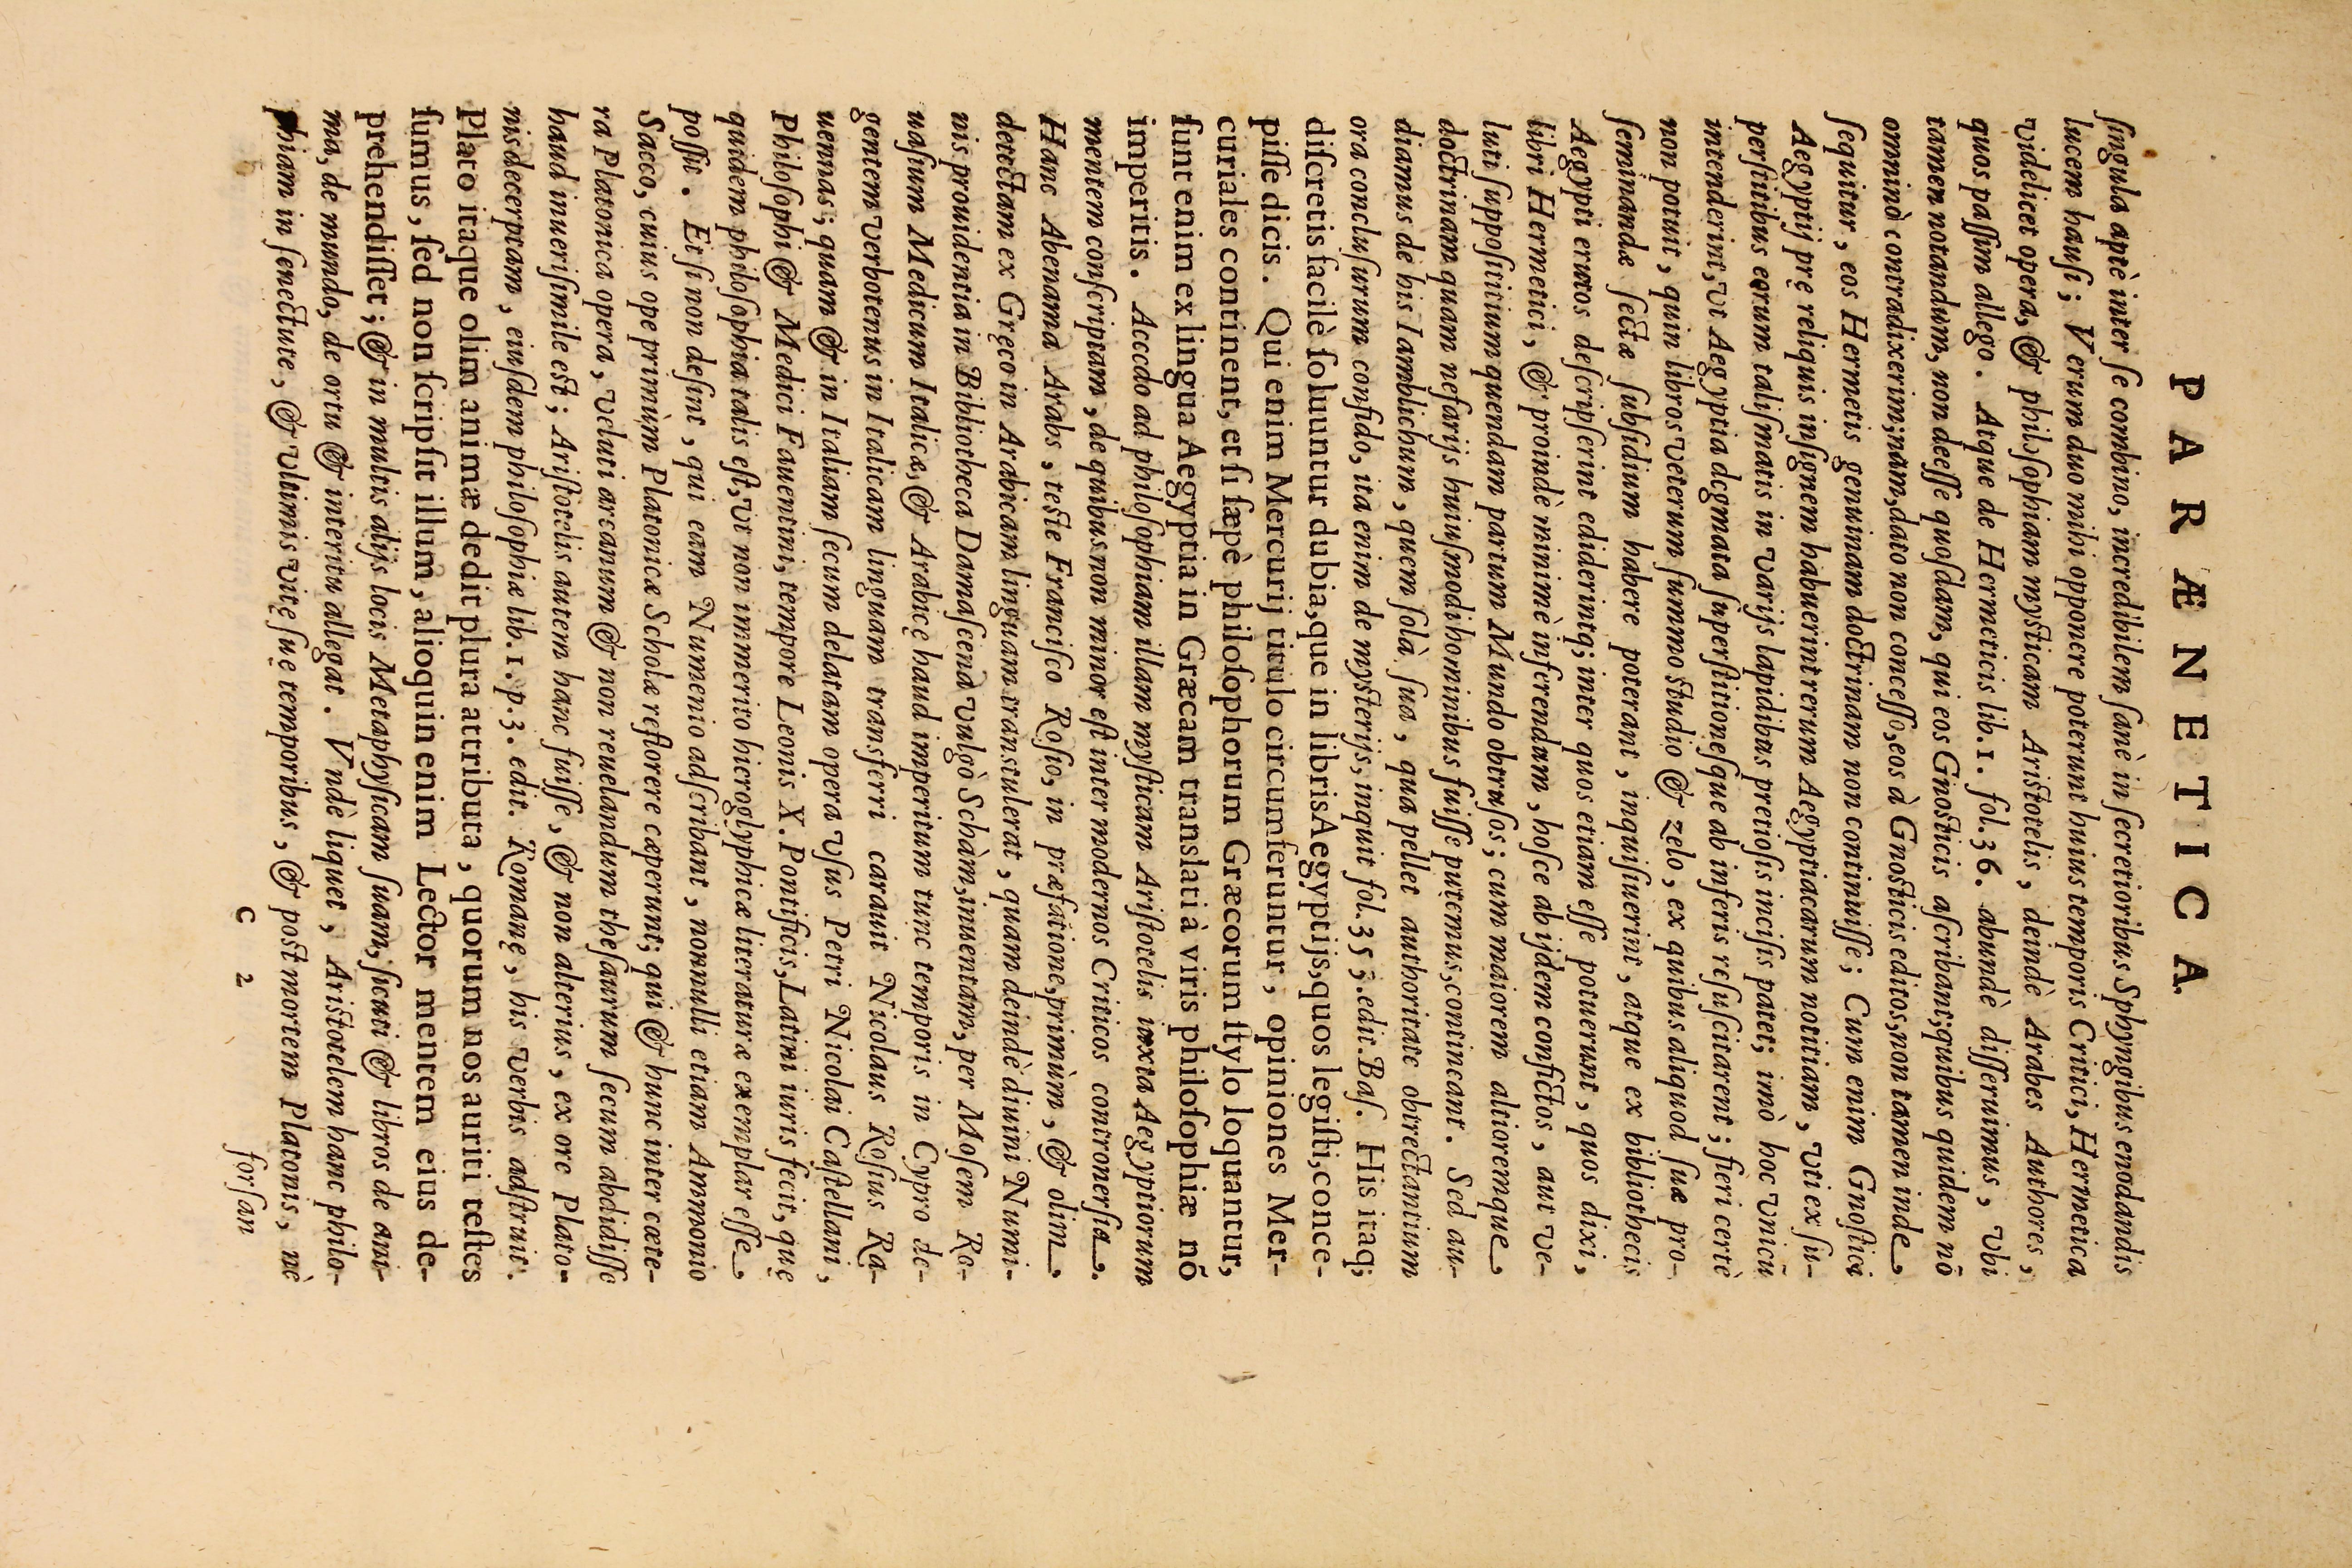 PARÆNETICA.
ſingula aptè inter ſe combino, incredibilem ſanè in ſecretioribus Sphyngibus enodandis
lucem hauſi; Verum duo mihi opponere poterunt huius temporis Critici, Hermetica
videlicet opera, & philoſophiam myſticam Ariſtotelis, deindè Arabes Authores,
quos paſſim allego. Atque de Hermeticis lib. 1. fol. 36. abundè diſſeruimus, vbi
tamen notandum, non deeſſe quoſdam, qui eos Gnoſticis aſcribant; quibus quidem nō
omninò contradixerim; nam, dato non conceſſo, eos à Gnoſticis editos, non tamen inde
ſequitur, eos Hermetis genuinam doctrinam non continuiſſe; Cum enim Gnoſtici
Aegyptij prę reliquis inſignem habuerint rerum Aegyptiacarum notitiam, vti ex ſu-
perſtitibus eorum taliſmatis in varijs lapidibus pretioſis inciſis patet; imò hoc vnicū
intenderint, vt Aegyptia dogmata ſuperſtitioneſque ab inferis reſuſcitarent; fieri certè
non potuit, quin libros veterum ſummo ſtudio & zelo, ex quibus aliquod ſuæ pro-
ſeminandæ ſectæ ſubſidium habere poterant, inquiſiuerint, atque ex bibliothecis
Aegypti erutos deſcripſerint ediderintq; inter quos etiam eſſe potuerunt, quos dixi,
libri Hermetici, & proindè minimè inferendum, hoſce ab ijſdem confictos, aut ve-
luti ſuppoſititium quendam partum Mundo obtruſos; cum maiorem altioremque
doctrinam quam nefarijs huiuſmodi hominibus fuiſſe putemus, contineant. Sed au-
diamus de his Iamblichum, quem ſolà ſua, qua pollet authoritate obtrectantium
ora concluſurum confido, ita enim de myſterijs, inquit fol. 35 5. edit. Baſ. His itaq;
diſcretis facilè ſoluuntur dubia, que in libris Aegyptijs, quos legiſti, conce-
piſſe dicis. Qui enim Mercurij titulo circumferuntur, opiniones Mer-
curiales continent, etſi ſæpè philoſophorum Græcorum ſtylo loquantur,
ſunt enim ex lingua Aegyptia in Græcam translati à viris philoſophiæ nō
imperitis. Accedo ad philoſophiam illam myſticam Ariſtotelis iuxta Aegyptiorum
mentem conſcriptam, de quibus non minor eſt inter modernos Criticos controuerſia.
Hanc Abenama Arabs, teſte Franciſco Roſio, in præfatione, primùm, & olim
detectam ex Gręco in Arabicam linguam transtulerat, quam deindè diuini Numi-
nis prouidentia in Bibliotheca Damaſcena vulgò Schàm, inuentam, per Moſem Ro-
uaſium Medicum Italicæ, & Arabicę haud imperitum tunc temporis in Cypro de-
gentem verbotenus in Italicam linguam transferri carauit Nicolaus Roſius Ra-
uennas; quam & in Italiam ſecum delatam opera vſus Petri Nicolai Caſtellani,
Philoſophi & Medici Fauentini, tempore Leonis X. Pontificis, Latini iuris fecit, quę
quidem philoſophia talis eſt, vt non immerito hieroglyphicæ literaturæ exemplar eſſe
poſſit. Et ſi non deſint, qui eam Numenio adſcribant, nonnulli etiam Ammonio
Sacco, cuius ope primùm Platonicæ Scholæ reflorere cæperunt; qui & hunc inter cæte-
ra Platonica opera, veluti arcanum & non reuelandum theſaurum ſecum abdidiſſe
haud inueriſimile eſt; Ariſtotelis autem hanc fuiſſe, & non alterius, ex ore Plato-
nis decerptam, eiuſdem philoſophiæ lib. 1. p. 3. edit. Romanę, his verbis adſtruit.
Plato itaque olim animæ dedit plura attributa, quorum nos auriti teſtes
ſumus, ſed non ſcripſit illum, alioquin enim Lector mentem eius de-
prehendiſſet; & in multis alijs locis Metaphyſicam ſuam, ſicuti & libros de ani-
ma, de mundo, de ortu & interitu allegat. Vndè liquet, Ariſtotelem hanc philo-
phiam in ſenectute, & vltimis vitę ſuę temporibus, & poſt mortem Platonis, nè
C 2 forſan